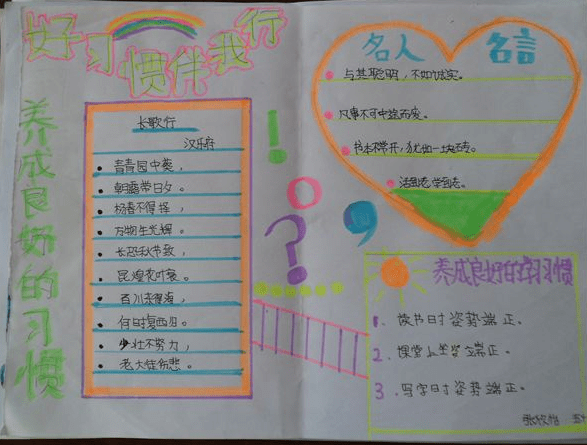 好习惯伴我行
养成良好的习惯
长歌行
汉乐府
青青园中葵，
朝露待日夕。
杨春不得择，
万物生光辉。
长恐秋节致，
昆煌花叶衰。
百川东得海，
何时复西归。
少壮不努力，
老大徒伤悲。
！
？
名人 名言
与其聪明，不如诚实。
凡事不可中途而变。
书本不常开，犹如一块砖。
活到老，学到老。
养成良好的学习惯
1、读书时姿势端正。
2、课堂上坐姿立端正。
3、写字时姿势端正。